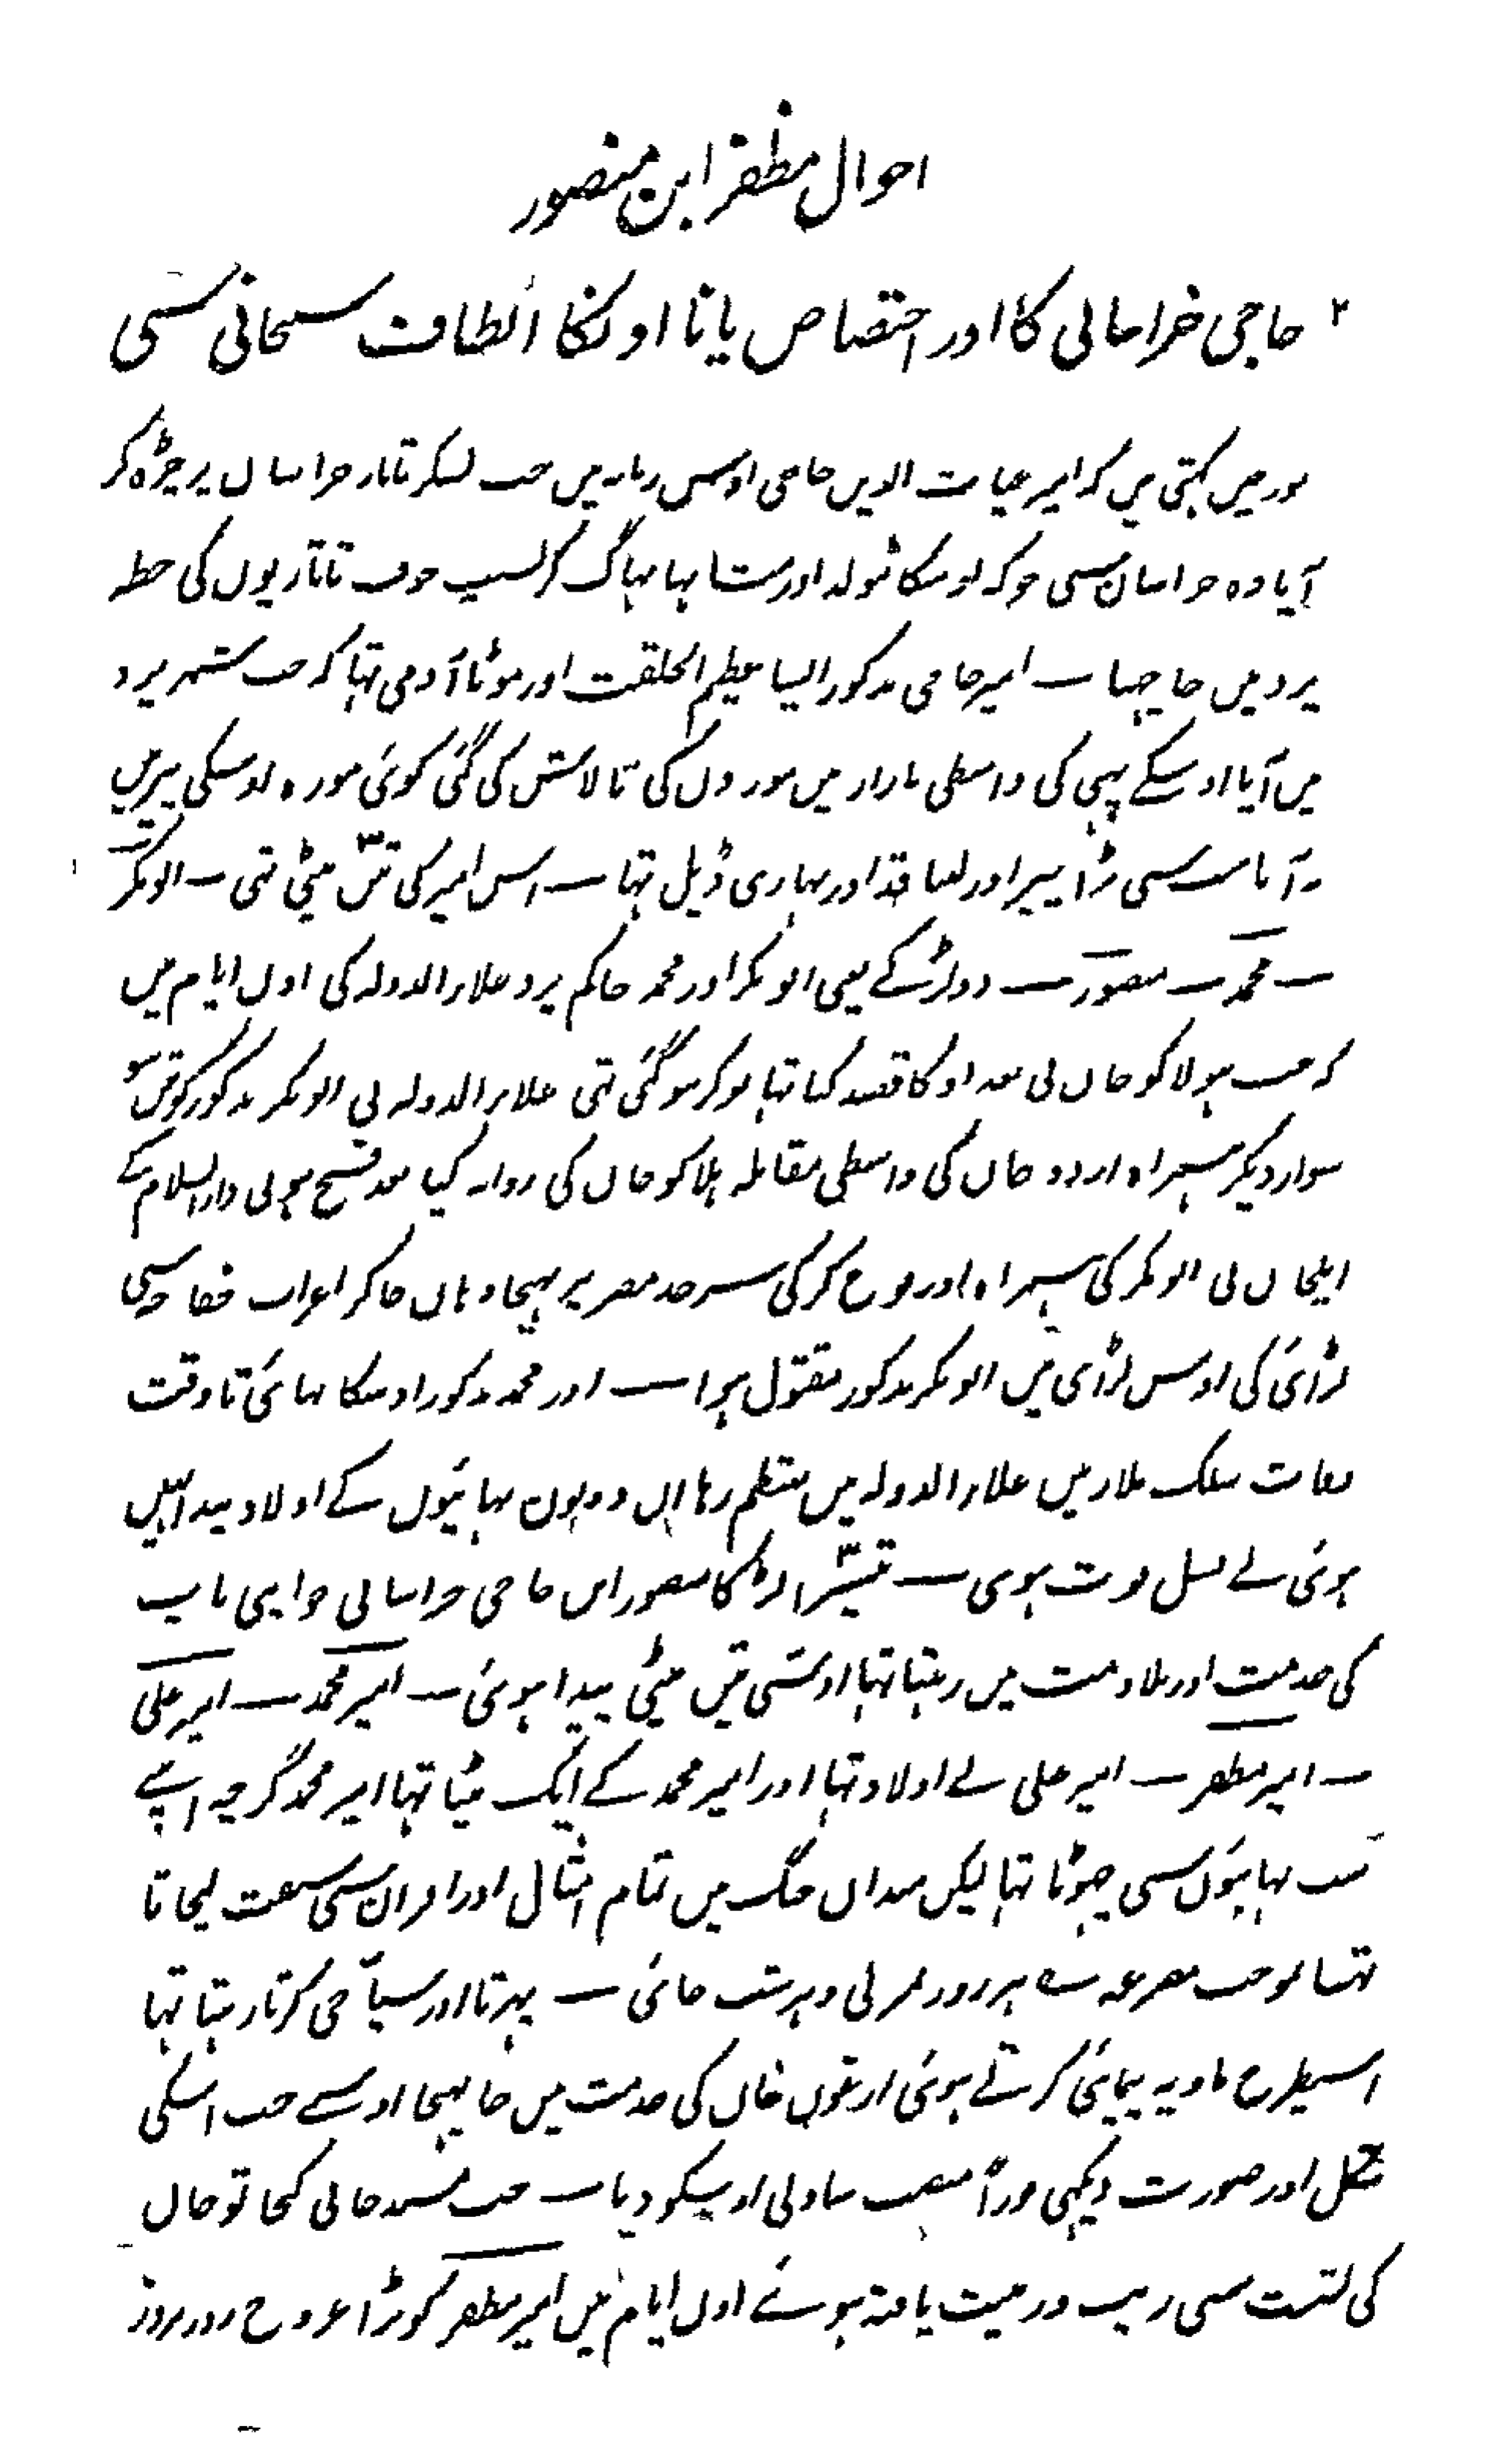 احوال مظفر ابن منصور
۲ حاجی خراسانی کا اور اختصاص پانا اونکا الطاف سبحانی سی
مورخین کہتی ہیں کہ امیر غیاث الدین حاجی اوس زمانہ میں جب لشکر تاتار خراسان پر چڑہ کر
آیا وہ خراسان سی جو کہ اوسکا مولد اور منشا تہا بہاگ کر بسبب خوف تاتاریوں کی خطہ
یزد میں جا چہپا ــ امیر حاجی مذکور ایسا عظیم الخلقت اور موٹا آدمی تہا کہ جب شہر یزد
میں آیا اوسکے پہننے کی واسطی بازار میں موزوں کی تالاش کی گئی کوئی موزہ اوسکی پیر میں
نہ آیا سب سی بڑا پیر اور لمبا قد اور بہاری ڈیل تہا ــ اس امیر کی تین بیٹی تہی ــ ابوبکر
ــ محمد ــ منصور ــ دو لڑکے یعنی ابوبکر اور محمد حاکم یزد علاء الدولہ کی اول ایام میں
کہ جب ہولاکو خاں نی بغداد کا قصد کیا تہا نوکر ہو گئی تہی علاء الدولہ نی ابوبکر مذکور کو تین سو
سوار دیکر ہمراہ اردو خاں کی واسطی مقابلہ ہلاکو خاں کی روانہ کیا بعد فتح ہونی دار السلام کے
ایلخاں نی ابوبکر کی ہمراہ اور فوج کر کی سرحد مصر پر بہیجا وہاں جا کر اعراب خفاجہ سی
لڑائی کی اوس لڑائی میں ابوبکر مذکور مقتول ہوا ــ اور محمد مذکور اوسکا بہائی تا وقت
وفات سلک ملازمیں علاء الدولہ میں منتظم رہا ان دونوں بہائیوں کے اولاد پیدا نہیں
ہوئی بے نسل فوت ہوی ــ تیسرا لڑکا منصور ابن حاجی خراسانی جو اپنی باپ
کی خدمت اور ملازمت میں رہتا تہا اوس سی تین بیٹی پیدا ہوئی ــ امیر محمد ــ امیر علی
ــ امیر مظفر ــ امیر علی بے اولاد تہا اور امیر محمد کے ایک بیٹا تہا امیر محمد گرچہ اپنے
سب بہائیوں سی چہوٹا تہا لیکن میداں جنگ میں تمام امثال اور اقران سی سبقت لیجاتا
تہا بموجب مصرعہ ہر روز بمنزلی و ہر شب جائی ــ پہرتا اور سیاحی کرتا رہتا تہا
اسیطرح بادیہ پیمائی کرتے ہوئی ارغوں خاں کی خدمت میں جا پہنچا اوسے جب اسکی
شکل اور صورت دیکہی فوراً منصب یساولی اوسکو دیا ــ جب مسند خانی کیخاتو خاں
کی نشست سی زیب و زینت یافتہ ہوئے اول ایام میں امیر مظفر کو بڑا عروج روز بروز